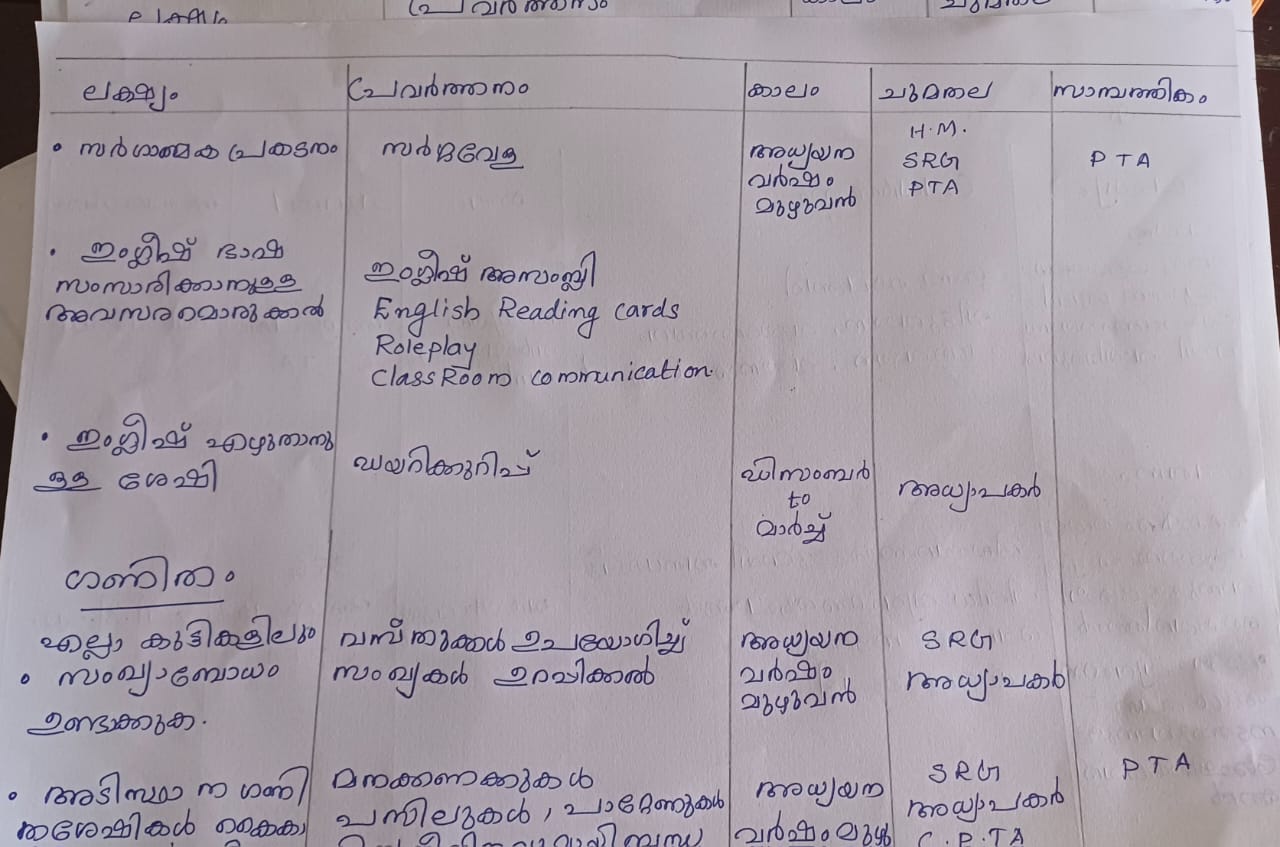 പ്രവർത്തനം
ലക്ഷ്യം പ്രവർത്തനം കാലം ചുമതല സാമ്പത്തികം
• സർഗാത്മക പ്രകടനം സർഗ്ഗവേള അധ്യയന വർഷം മുഴുവൻ H.M. SRG PTA PTA
• ഇംഗ്ലീഷ് ഭാഷ
സംസാരിക്കാനുള്ള
അവസരമൊരുക്കൽ
ഇംഗ്ലീഷ് അസംബ്ലി
English Reading cards
Roleplay
ClassRoom communication.
• ഇംഗ്ലീഷ് എഴുതാനു
ള്ള ശേഷി
ഡയറിക്കുറിപ്പ്
ഡിസംബർ
to
മാർച്ച്
അധ്യാപകർ
ഗണിതം
എല്ലാ കുട്ടികളിലും
• സംഖ്യാബോധം
ഉണ്ടാക്കുക.
വസ്തുക്കൾ ഉപയോഗിച്ച്
സംഖ്യകൾ ഉറപ്പിക്കൽ
അധ്യയന
വർഷം
മുഴുവൻ
SRG
അധ്യാപകർ
• അടിസ്ഥാന ഗണി
തശേഷികൾ കൈക
മനക്കണക്കുകൾ
പസിലുകൾ, പാറ്റേണുകൾ
അധ്യയന
വർഷം മുഴു
SRG
അധ്യാപകർ
C.P.TA
PTA